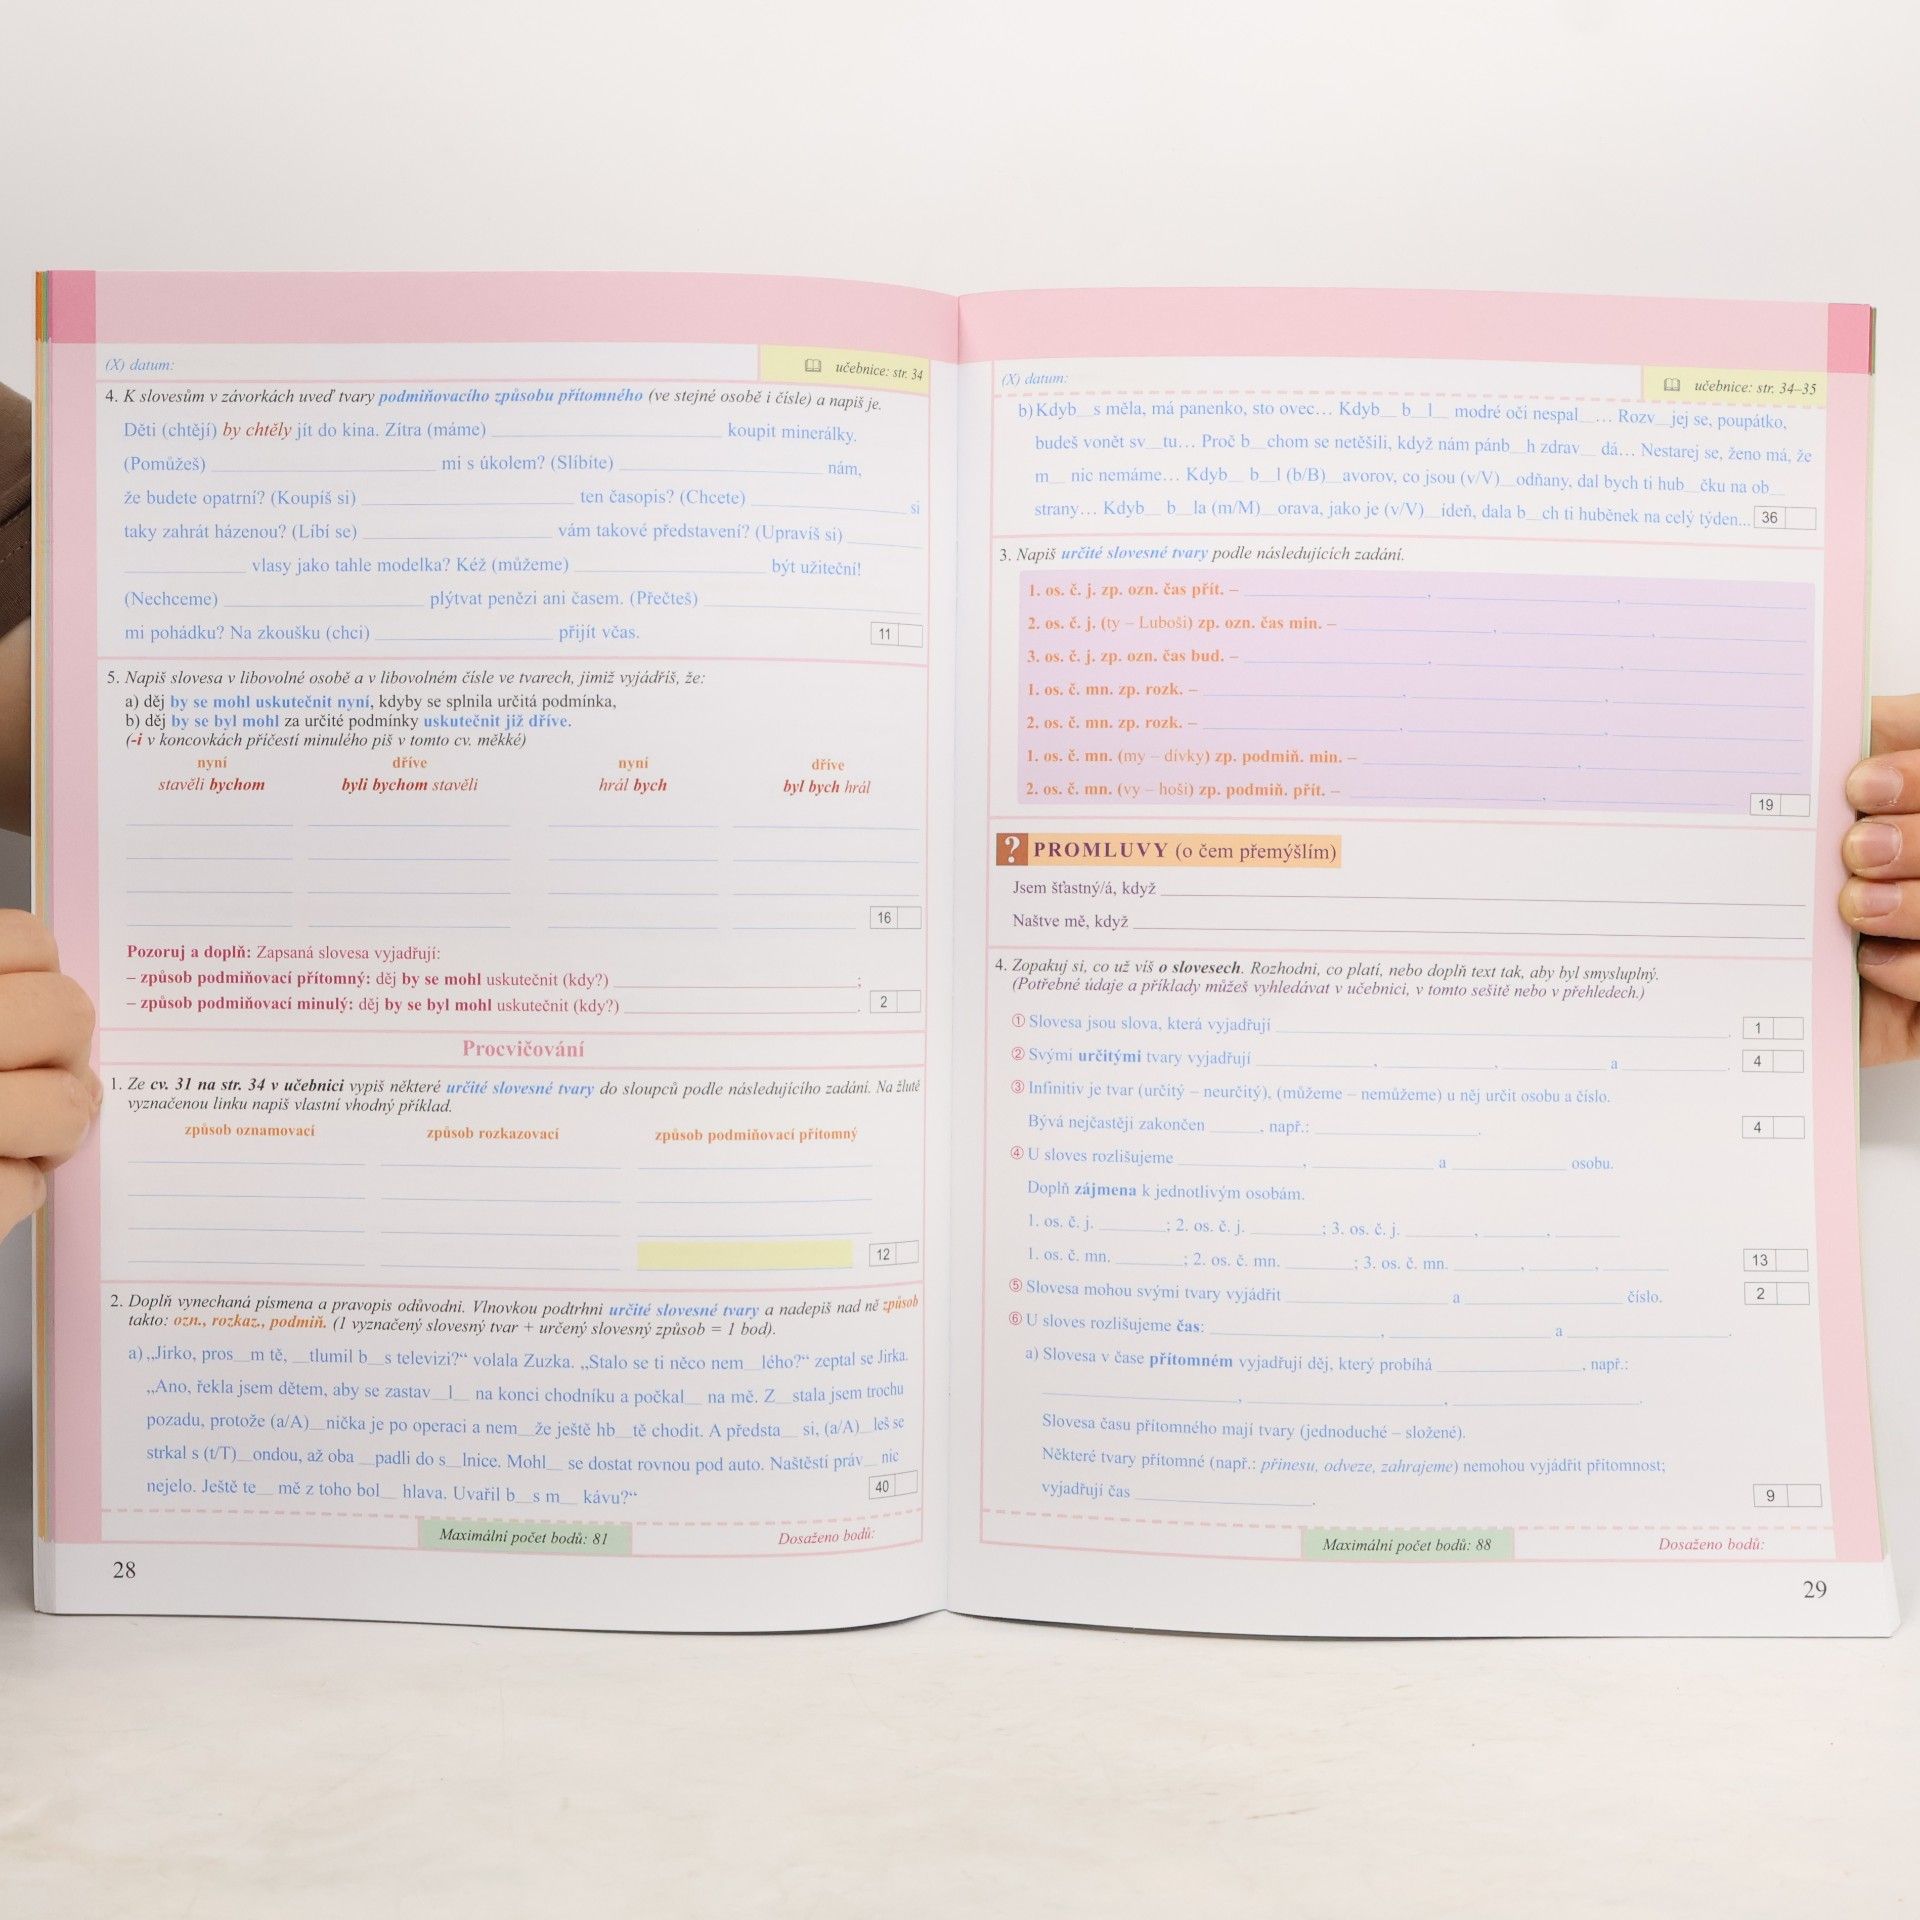 (X) datum:
učebnice: str. 34
4. K slovesům v závorkách uveď tvary podmiňovacího způsobu přítomného (ve stejné osobě i čísle) a napiš je.
Děti (chtějí) by chtěly jít do kina. Zítra (máme) ____ koupit minerálky.
(Pomůžeš) ____ mi s úkolem? (Slíbíte) ____ nám,
že budete opatrní? (Koupíš si) ____ ten časopis? (Chcete) ____ si
taky zahrát házenou? (Líbí se) ____ vám takové představení? (Upravíš si) ____
____ vlasy jako tahle modelka? Kéž (můžeme) ____ být užiteční!
(Nechceme) ____ plýtvat penězi ani časem. (Přečteš) ____
mi pohádku? Na zkoušku (chci) ____ přijít včas.
11
5. Napiš slovesa v libovolné osobě a v libovolném čísle ve tvarech, jimiž vyjádříš, že:
a) děj by se mohl uskutečnit nyní, kdyby se splnila určitá podmínka,
b) děj by se byl mohl za určité podmínky uskutečnit již dříve.
(-i v koncovkách příčestí minulého piš v tomto cv. měkké)
nyní dříve nyní dříve
stavěli bychom byli bychom stavěli hrál bych byl bych hrál
16
Pozoruj a doplň: Zapsaná slovesa vyjadřují:
– způsob podmiňovací přítomný: děj by se mohl uskutečnit (kdy?) ____;
– způsob podmiňovací minulý: děj by se byl mohl uskutečnit (kdy?) ____.
2
Procvičování
1. Ze cv. 31 na str. 34 v učebnici vypiš některé určité slovesné tvary do sloupců podle následujícího zadání. Na žlutě
vyznačenou linku napiš vlastní vhodný příklad.
způsob oznamovací způsob rozkazovací způsob podmiňovací přítomný
12
2. Doplň vynechaná písmena a pravopis odůvodni. Vlnovkou podtrhni určité slovesné tvary a nadepiš nad ně způsob
takto: ozn., rozkaz., podmiň. (1 vyznačený slovesný tvar + určený slovesný způsob = 1 bod).
a) „Jirko, pros__m tě, __tlumil b__s televizi?“ volala Zuzka. „Stalo se ti něco nem__lého?“ zeptal se Jirka.
„Ano, řekla jsem dětem, aby se zastav__l__ na konci chodníku a počkal__ na mě. Z__stala jsem trochu
pozadu, protože (a/A)__nička je po operaci a nem__že ještě hb__tě chodit. A představ__ si, (a/A)__leš se
strkal s (t/T)__ondou, až oba __padli do s__lnice. Mohl__ se dostat rovnou pod auto. Naštěstí práv__ nic
nejelo. Ještě te__ mě z toho bol__ hlava. Uvařil b__s m__ kávu?“
40
Maximální počet bodů: 81
Dosaženo bodů:
28
(X) datum:
učebnice: str. 34–35
b) Kdyb__s měla, má panenko, sto ovec… Kdyb__ b__l__ modré oči nespal__… Rozv__jej se, poupátko,
budeš vonět sv__tu… Proč b__chom se netěšili, když nám pánb__h zdrav__ dá… Nestarej se, ženo má, že
m__ nic nemáme… Kdyb__ b__l (b/B)__avorov, co jsou (v/V)__odňany, dal bych ti hub__čku na ob__
strany… Kdyb__ b__la (m/M)__orava, jako je (v/V)__ídeň, dala b__ch ti huběnek na celý týden...
36
3. Napiš určité slovesné tvary podle následujících zadání.
1. os. č. j. zp. ozn. čas přít. – ____, ____, ____
2. os. č. j. (ty – Luboši) zp. ozn. čas min. – ____, ____, ____
3. os. č. j. zp. ozn. čas bud. – ____, ____, ____
1. os. č. mn. zp. rozk. – ____, ____, ____
2. os. č. mn. zp. rozk. – ____, ____, ____
1. os. č. mn. (my – dívky) zp. podmiň. min. – ____, ____
2. os. č. mn. (vy – hoši) zp. podmiň. přít. – ____, ____
19
? PROMLUVY (o čem přemýšlím)
Jsem šťastný/á, když ____
Naštve mě, když ____
4. Zopakuj si, co už víš o slovesech. Rozhodni, co platí, nebo doplň text tak, aby byl smysluplný.
(Potřebné údaje a příklady můžeš vyhledávat v učebnici, v tomto sešitě nebo v přehledech.)
① Slovesa jsou slova, která vyjadřují ____.
1
② Svými určitými tvary vyjadřují ____, ____, ____ a ____.
4
③ Infinitiv je tvar (určitý – neurčitý), (můžeme – nemůžeme) u něj určit osobu a číslo.
Bývá nejčastěji zakončen ____, např.: ____.
4
④ U sloves rozlišujeme ____, ____ a ____ osobu.
Doplň zájmena k jednotlivým osobám.
1. os. č. j. ____; 2. os. č. j. ____; 3. os. č. j. ____, ____, ____
1. os. č. mn. ____; 2. os. č. mn. ____; 3. os. č. mn. ____, ____, ____
13
⑤ Slovesa mohou svými tvary vyjádřit ____ a ____ číslo.
2
⑥ U sloves rozlišujeme čas: ____, ____ a ____.
a) Slovesa v čase přítomném vyjadřují děj, který probíhá ____, např.:
____, ____, ____.
Slovesa času přítomného mají tvary (jednoduché – složené).
Některé tvary přítomné (např.: přinesu, odveze, zahrajeme) nemohou vyjádřit přítomnost;
vyjadřují čas ____.
9
Maximální počet bodů: 88
Dosaženo bodů:
29